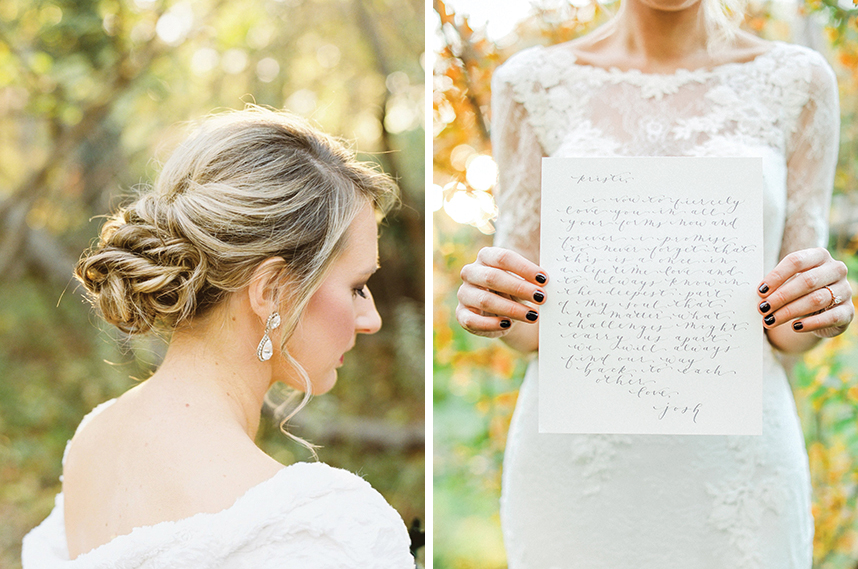 kristi,
i vow to fiercely
love you in all
your forms now and
forever. i promise
to never forget that
this is a once in
a lifetime love and
to always know in
the deepest part
of my soul that
no matter what
challenges might
carry us apart
we will always
find our way
back to each
other.
love,
josh